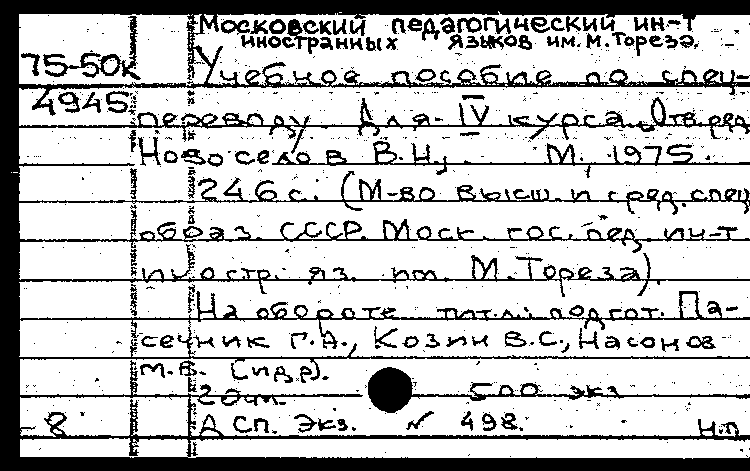 Московский педагогический ин-т
иностранных языков им. М. Тореза.
75-50к
Учебное пособие по спец-
4945
переводу. Для IV курса. Отв. ред
Новоселов В.Н., М., 1975.
246 с. (М-во высш. и сред. спец
образ. СССР. Моск. гос. пед. ин-т
иностр. яз. им. М. Тореза).
На обороте титл.: подгот. Па-
сечник Г.А., Козин В.С., Насонов
М.В. (и др).
20чп. 500 экз
-8 Д Сп. экз. № 498. Н.п